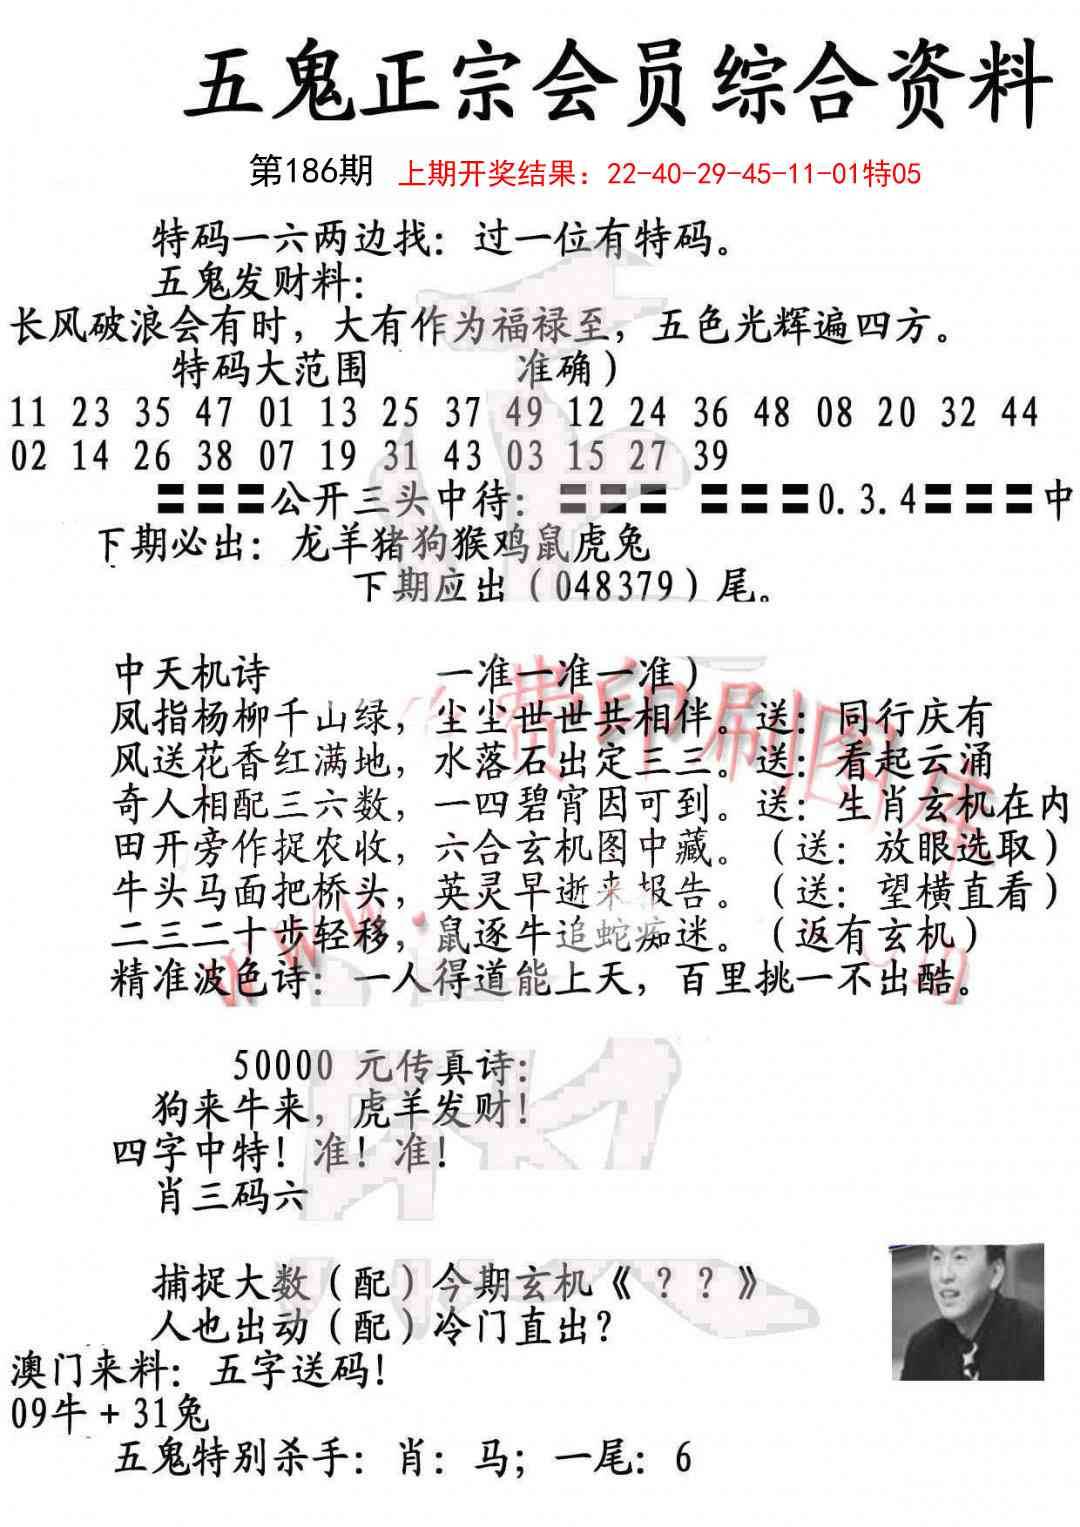 五鬼正宗会员综合资料
第186期 上期开奖结果：22-40-29-45-11-01特05
特码一六两边找：过一位有特码。
五鬼发财料：
长风破浪会有时，大有作为福禄至，五色光辉遍四方。
特码大范围 准确）
11 23 35 47 01 13 25 37 49 12 24 36 48 08 20 32 44
02 14 26 38 07 19 31 43 03 15 27 39
〓〓〓公开三头中待：〓〓〓 〓〓〓0.3.4〓〓〓中
下期必出：龙羊猪狗猴鸡鼠虎兔
下期应出（048379）尾。
中天机诗 一准一准一准）
凤指杨柳千山绿，尘尘世世共相伴。送：同行庆有
风送花香红满地，水落石出定三三。送：看起云涌
奇人相配三六数，一四碧宵因可到。送：生肖玄机在内
田开旁作捉农收，六合玄机图中藏。（送：放眼选取）
牛头马面把桥头，英灵早逝来报告。（送：望横直看）
二三二十步轻移，鼠逐牛追蛇痴迷。（返有玄机）
精准波色诗：一人得道能上天，百里挑一不出酷。
50000 元传真诗：
狗来牛来，虎羊发财！
四字中特！准！准！
肖三码六
捕捉大数（配）今期玄机《？？》
人也出动（配）冷门直出？
澳门来料：五字送码！
09牛+31兔
五鬼特别杀手：肖：马；一尾：6
费印刷图库
www.